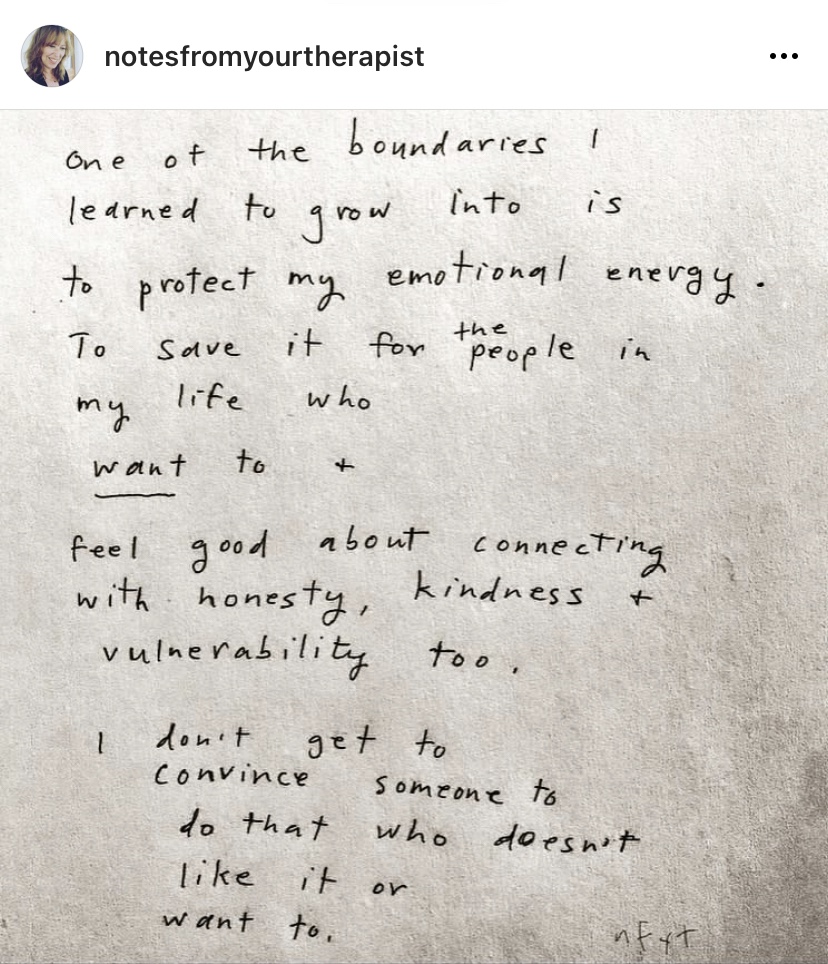 notesfromyourtherapist
One of the boundaries I
learned to grow into is
to protect my emotional energy.
To save it for the people in
my life who
want to +
feel good about connecting
with honesty, kindness +
vulnerability too.
I don't get to
convince someone to
do that who doesn't
like it or
want to.
nfyt